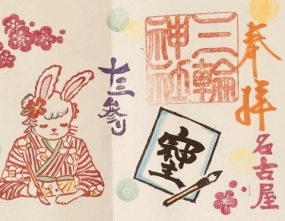 奉拝
名古屋
三輪
神社
十三参り